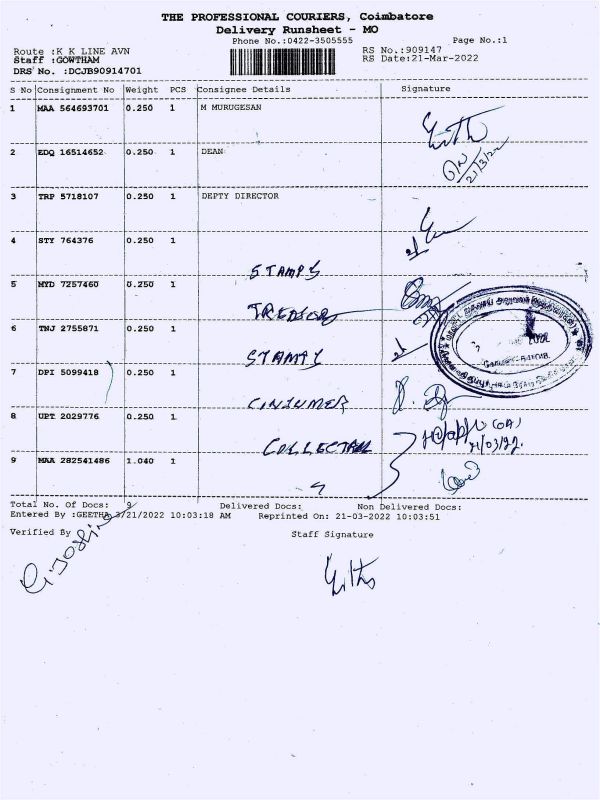 THE PROFESSIONAL COURIERS, Coimbatore
Delivery Runsheet - MO
Phone No.:0422-3505555
Page No.:1
Route :K K LINE AVN
RS No.:909147
Staff :GOWTHAM
RS Date:21-Mar-2022
DRS No. :DCJB90914701
S No Consignment No Weight PCS Consignee Details Signature
1 MAA 564693701 0.250 1 M MURUGESAN
2 EDQ 16514652 0.250 1 DEAN
21/3/22
3 TRP 5718107 0.250 1 DEPTY DIRECTOR
4 STY 764376 0.250 1
STAMPS
5 MYD 7257460 0.250 1
6 TNJ 2755871 0.250 1
7 DPI 5099418 0.250 1
CONSUMER
8 UPT 2029776 0.250 1
21/03/22.
9 MAA 282541486 1.040 1
Total No. Of Docs: 9 Delivered Docs: Non Delivered Docs:
Entered By :GEETHA 3/21/2022 10:03:18 AM Reprinted On: 21-03-2022 10:03:51
Verified By Staff Signature